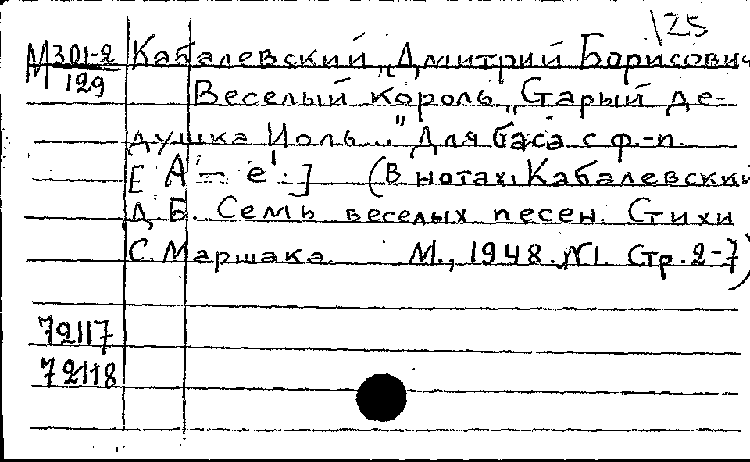 125
М301-2 Кабалевский, Дмитрий Борисович
129 Веселый король „Старый де-
душка Йоль..." Для баса с ф.-п.
[A' – e'.] (В нотах: Кабалевский
Д.Б. Семь веселых песен. Стихи
С. Маршака М., 1948. №1. Стр. 2-7)
72117
72118